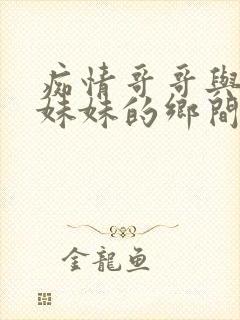 痴情哥哥與
妹妹的鄉間
金龍魚